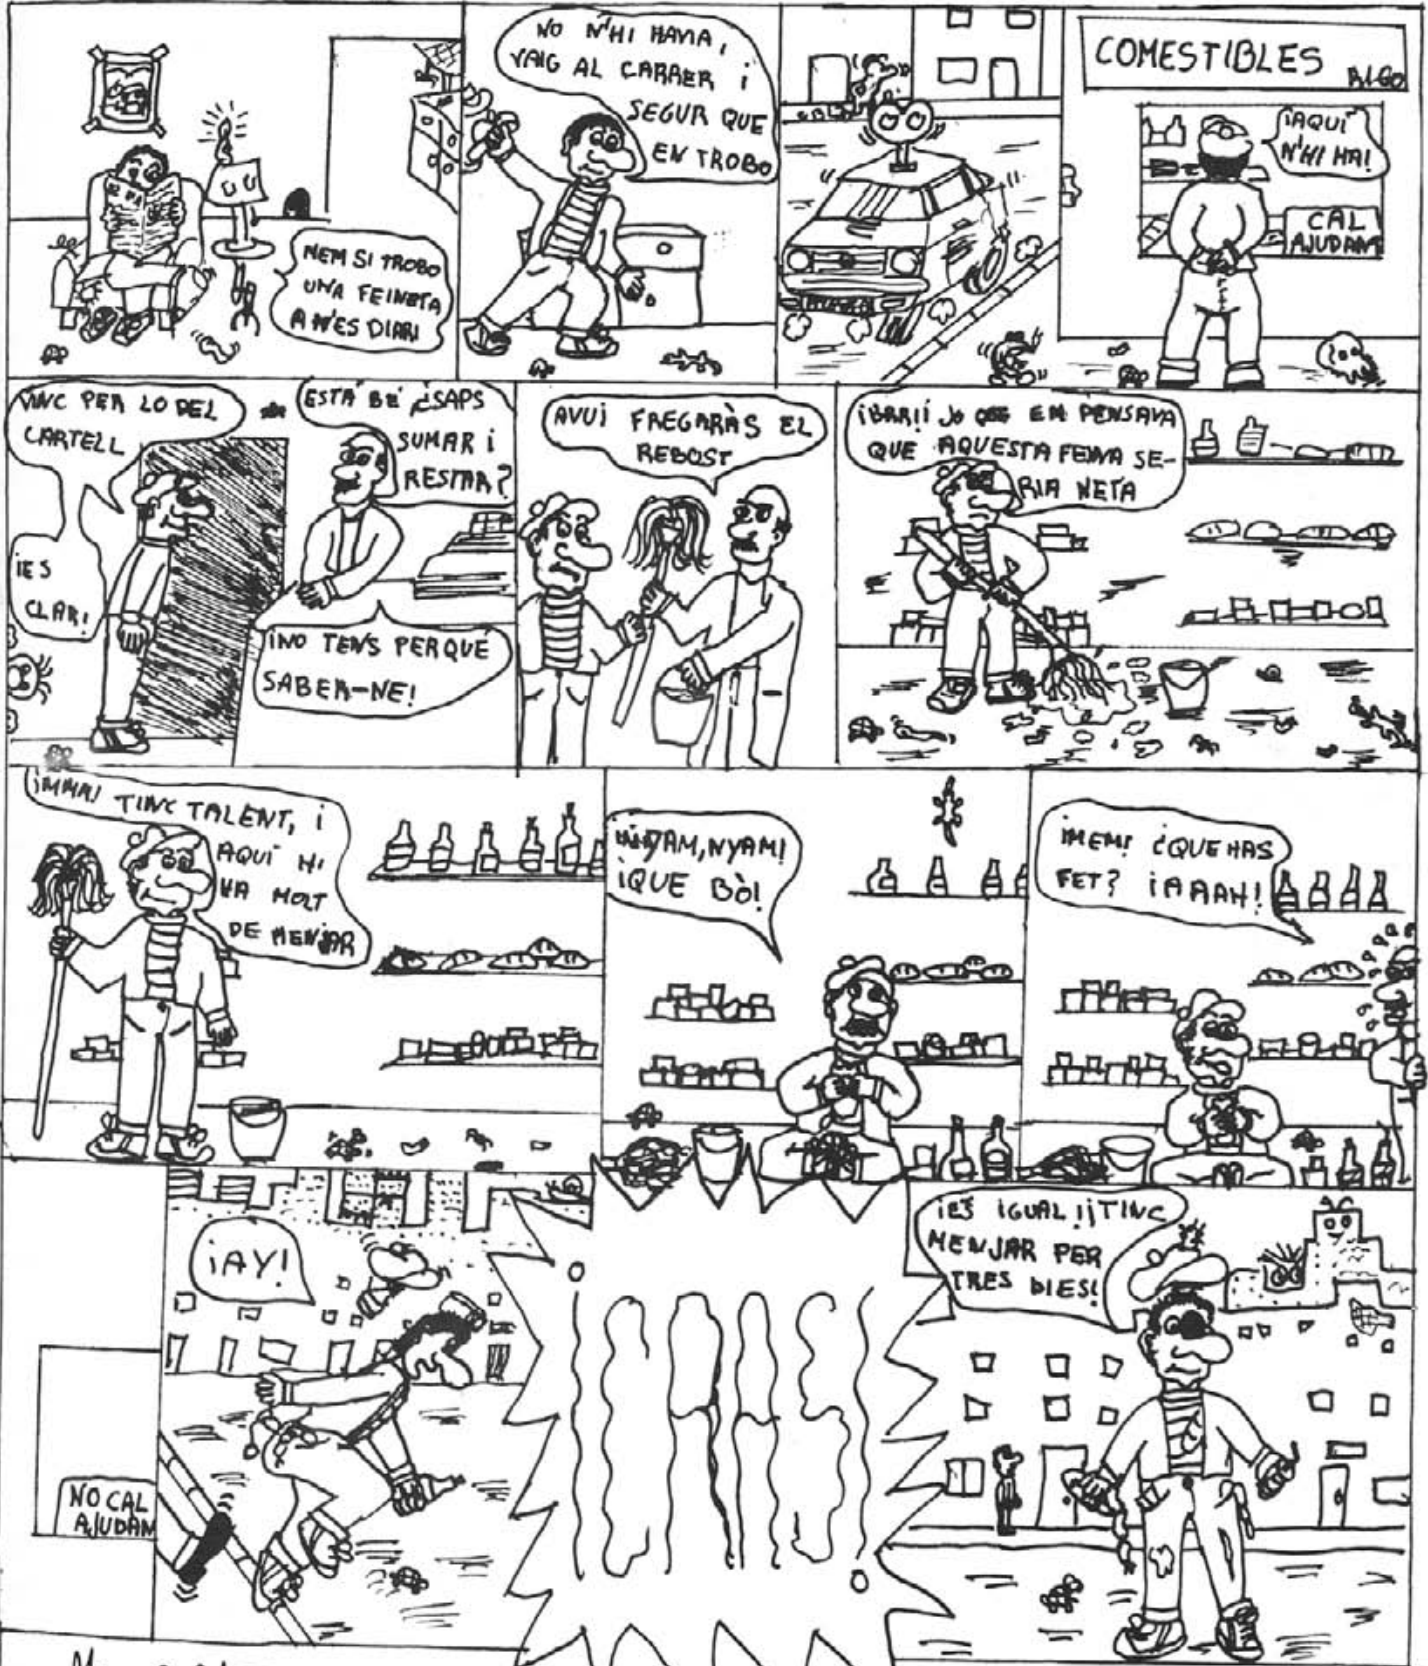 MEM SI TROBO
UNA FEINETA
A N'ES DIARI
NO N'HI HAVIA,
VAIG AL CARRER I
SEGUR QUE
EN TROBO
COMESTIBLES
RIGO
¡AQUÍ
N'HI HA!
CAL
AJUDANT
VINC PER LO DEL
CARTELL
¡ES
CLAR!
ESTÀ BÉ ¿SAPS
SUMAR I
RESTAR?
¡NO TENS PERQUÉ
SABER-NE!
AVUI FREGARÀS EL
REBOST
¡BRR!¡ JO QUE EM PENSAVA
QUE AQUESTA FEINA SE-
RIA NETA
¡MMM! TINC TALENT, I
AQUÍ HI
HA MOLT
DE MENJAR
¡NYAM, NYAM!
¡QUE BÒ!
¡MEM! ¿QUE HAS
FET? ¡AAAH!
NO CAL
AJUDAN
¡AY!
¡ES IGUAL!¡¡TINC
MENJAR PER
TRES DIES!